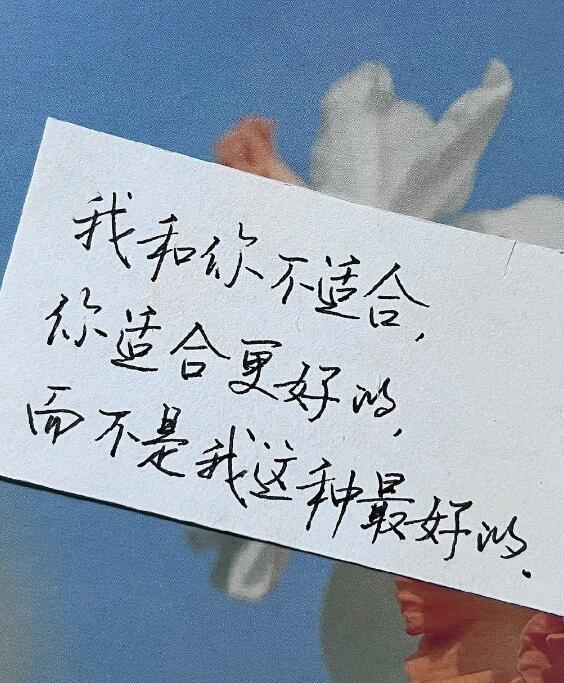 我和你不适合,
你适合更好的,
而不是我这种最好的.